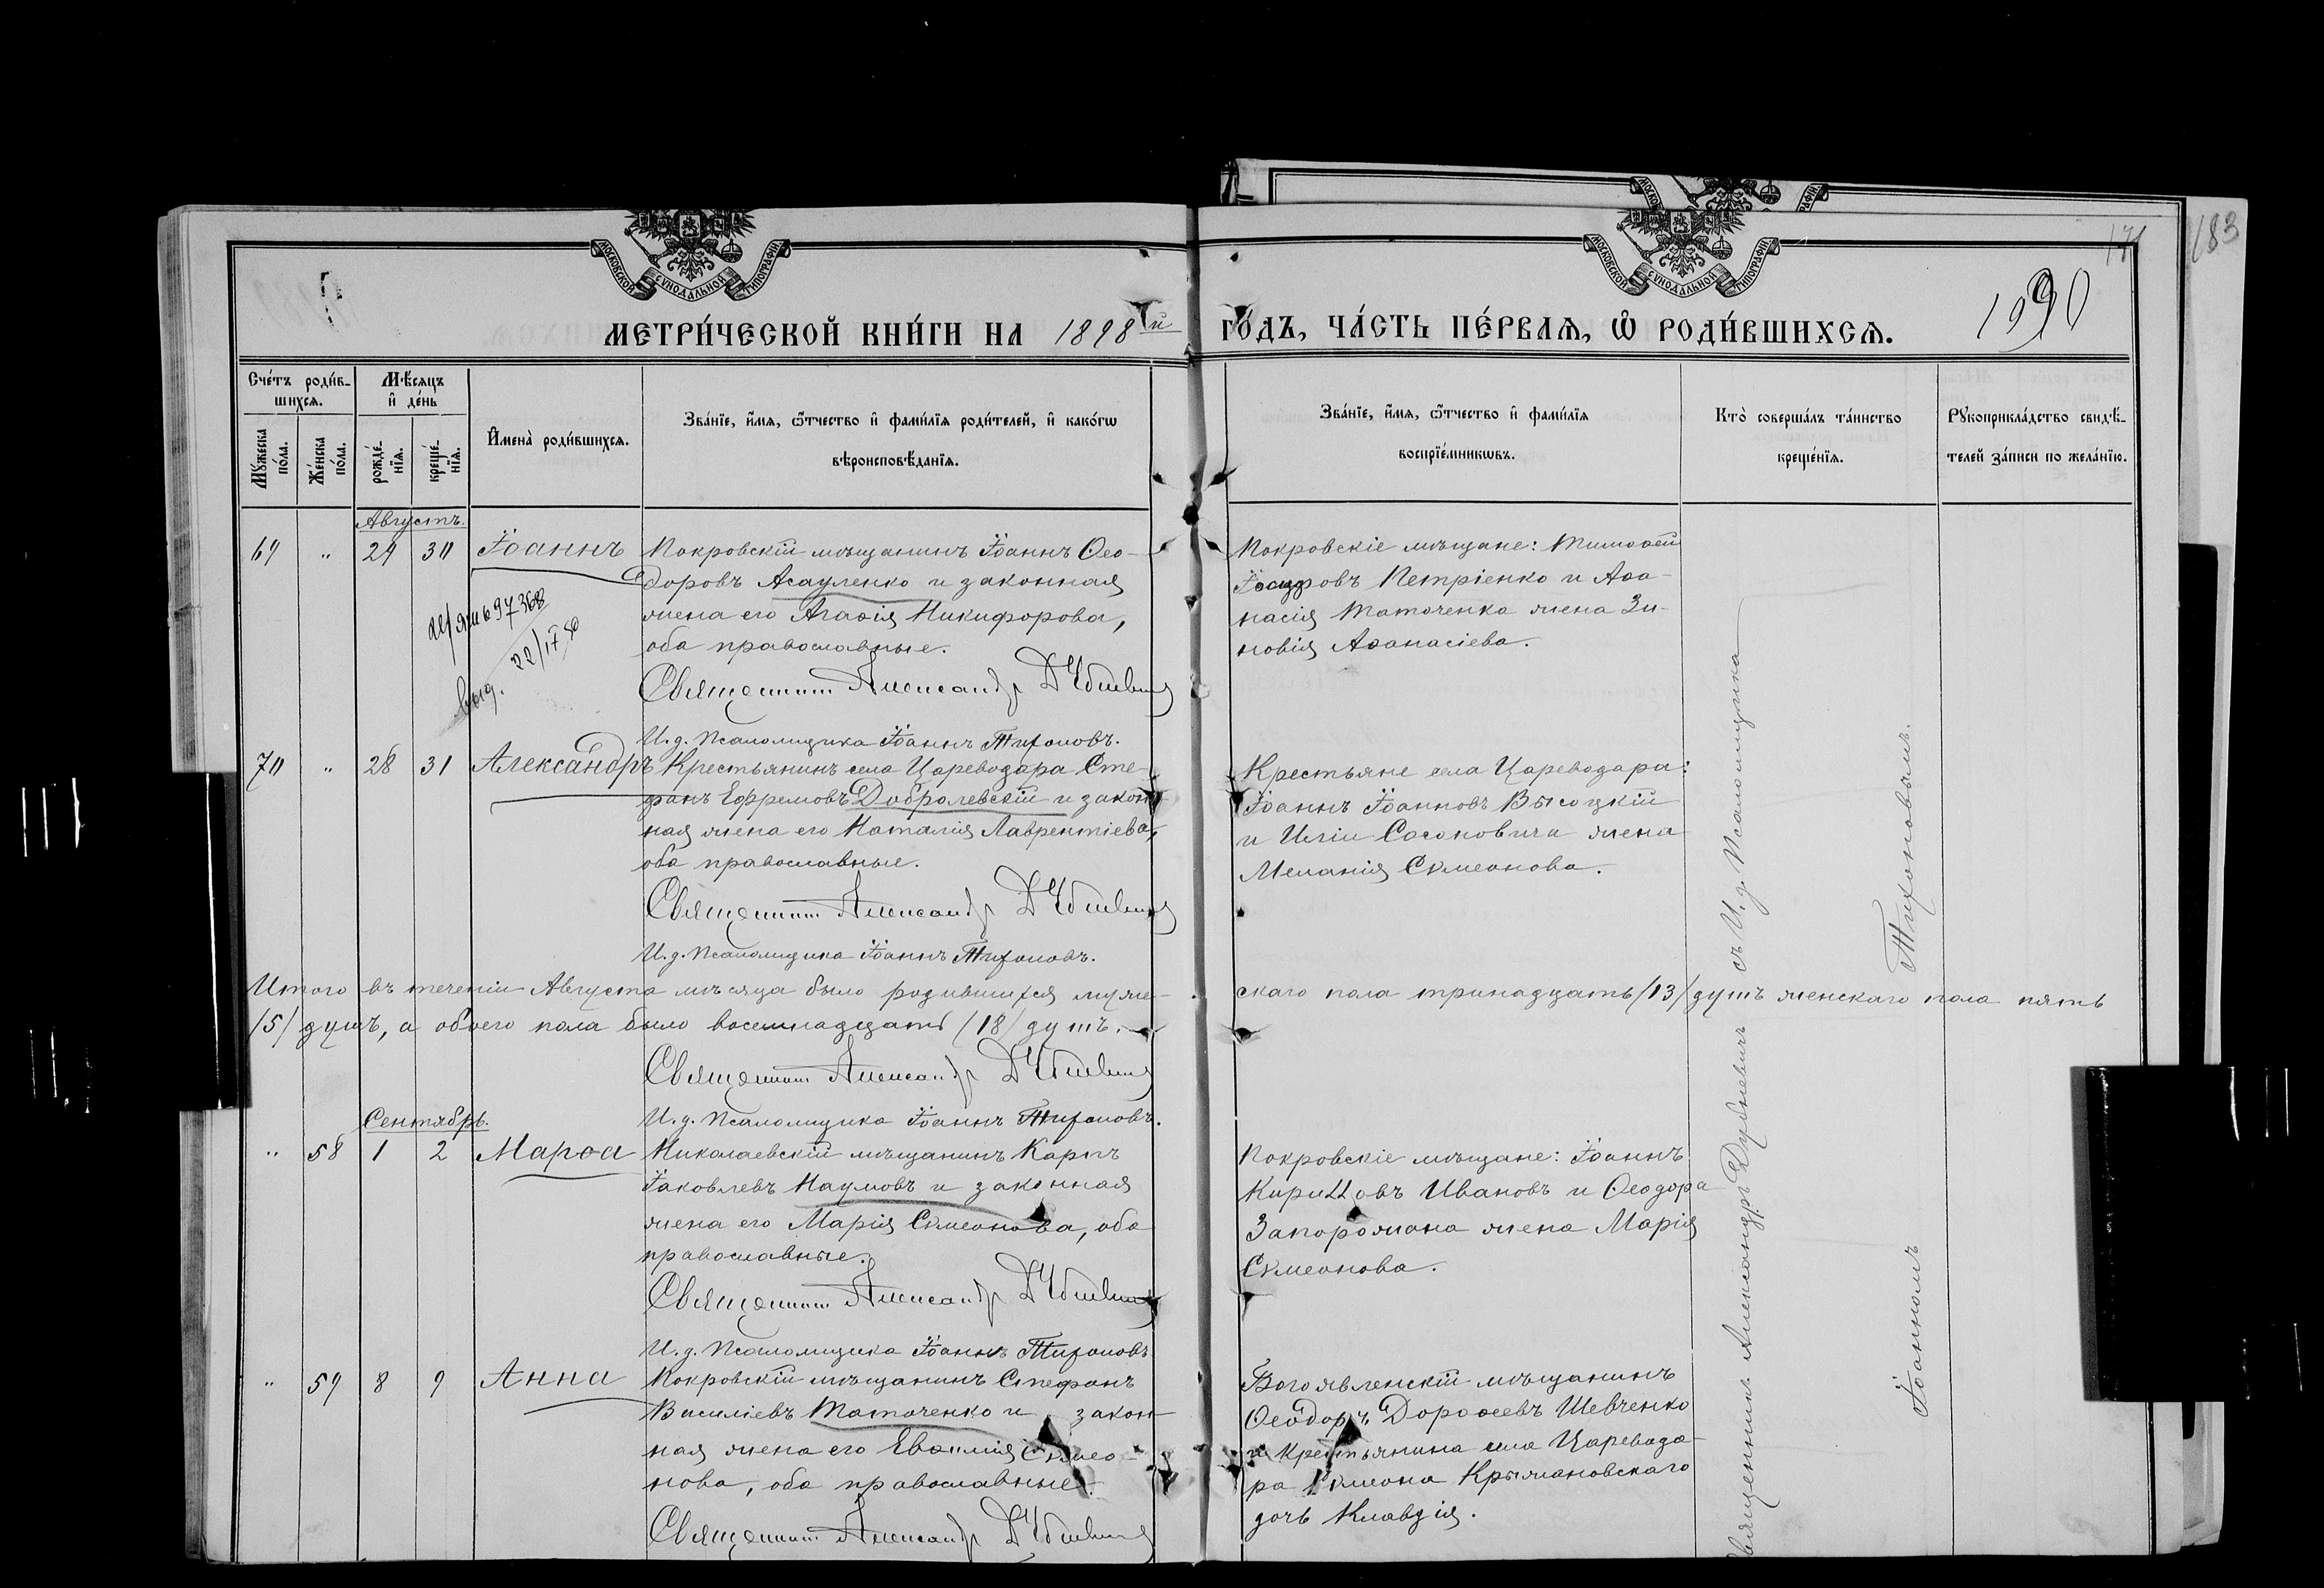 183
171
1990
МОСКОВСКОЙ СѴНОДАЛЬНОЙ ТИПОГРАФІИ
МОСКОВСКОЙ СѴНОДАЛЬНОЙ ТИПОГРАФІИ
МЕТРИ́ЧЕСКОЙ КНИ́ГИ НА 1898й ГО́ДЪ, ЧА́СТЬ ПЕ́РВАѦ, Ѡ҆ РОДИ́ВШИХСѦ.
Сче́тъ роди́в-
шихсѧ.
Мѣ́сѧцъ
и҆ де́нь
Мꙋ́жеска
по́ла.
Же́нска
по́ла.
рожде́-
нїѧ.
креще́-
нїѧ.
И҆мена̀ роди́вшихсѧ.
Зва́нїе, и҆́мѧ, ѻ҆́тчество и҆ фами́лїѧ роди́телей, и҆ како́гѡ
вѣроисповѣ́данїѧ.
Зва́нїе, и҆́мѧ, ѻ҆́тчество и҆ фами́лїѧ
воспрїе́мникѡвъ.
Кто̀ соверша́лъ та́инство
креще́нїѧ.
Рꙋкоприкла́дство свидѣ́-
телей за́писи по жела́нїю.
Августъ.
69 " 29 30 Іоаннъ
Покровскій мѣщанинъ Іоаннъ Ѳео-
доровъ Асауленко и законная
жена его Агаѳія Никифорова,
оба православные.
Священникъ Александръ Дубневичъ
И.д. Псаломщика Іоаннъ Тихоновъ.
97368
22/IX 50
выд.
Покровскіе мѣщане: Тимоѳей
Петріенко и Аѳа-
насія Таточенка жена Зи-
новія Аѳанасіева.
70 " 28 31 Александръ
Крестьянинъ села Цареводара Сте-
фанъ Ефремовъ Добролевскій и закон-
ная жена его Наталія Лаврентіева,
оба православные.
Священникъ Александръ Дубневичъ
И.д. Псаломщика Іоаннъ Тихоновъ.
Крестьяне села Цареводара:
Іоаннъ Іоанновъ Высоцкій
и Иліи Сосоновича жена
Меланія Сѵмеонова.
Итого въ теченіи Августа мѣсяца было родившихся муже-
скаго пола тринадцать /13/ душъ женскаго пола пять
/5/ душъ, а обоего пола было восемнадцать /18/ душъ.
Священникъ Александръ Дубневичъ
И.д. Псаломщика Іоаннъ Тихоновъ.
Сентябрь.
" 58 1 2 Марѳа
Николаевскій мѣщанинъ Карпъ
Іаковлевъ Наумовъ и законная
жена его Марія Сѵмеонова, оба
православные.
Священникъ Александръ Дубневичъ
И.д. Псаломщика Іоаннъ Тихоновъ
Покровскіе мѣщане: Іоаннъ
Кирилловъ Ивановъ и Ѳеодора
Запорожана жена Марія
Сѵмеонова.
" 59 8 9 Анна
Покровскій мѣщанинъ Стефанъ
Василіевъ Таточенко и закон-
ная жена его Евѳимія Сѵмео-
нова, оба православные.
Священникъ Александръ Дубневичъ
Богоявленскій мѣщанинъ
Ѳеодоръ Дороѳеевъ Шевченко
и Крестьянина села Цареводо-
ра Сѵмеона Крыжановскаго
дочь Клавдія.
Священникъ Александръ Дубневичъ съ И.д. Псаломщика
Іоанномъ Тихоновымъ.